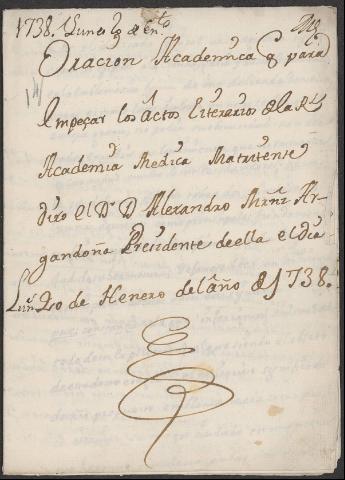 1738. Lunes 20 de En.ro
Oracion Academica q para
Empeçar los Actos Literarios de la Rl
Academia Medica Matritense
dixo el Dr. D. Alexandro Mrñz Ar-
gandoña Presidente de ella el dia
Lun. 20 de Henero del año de 1738.